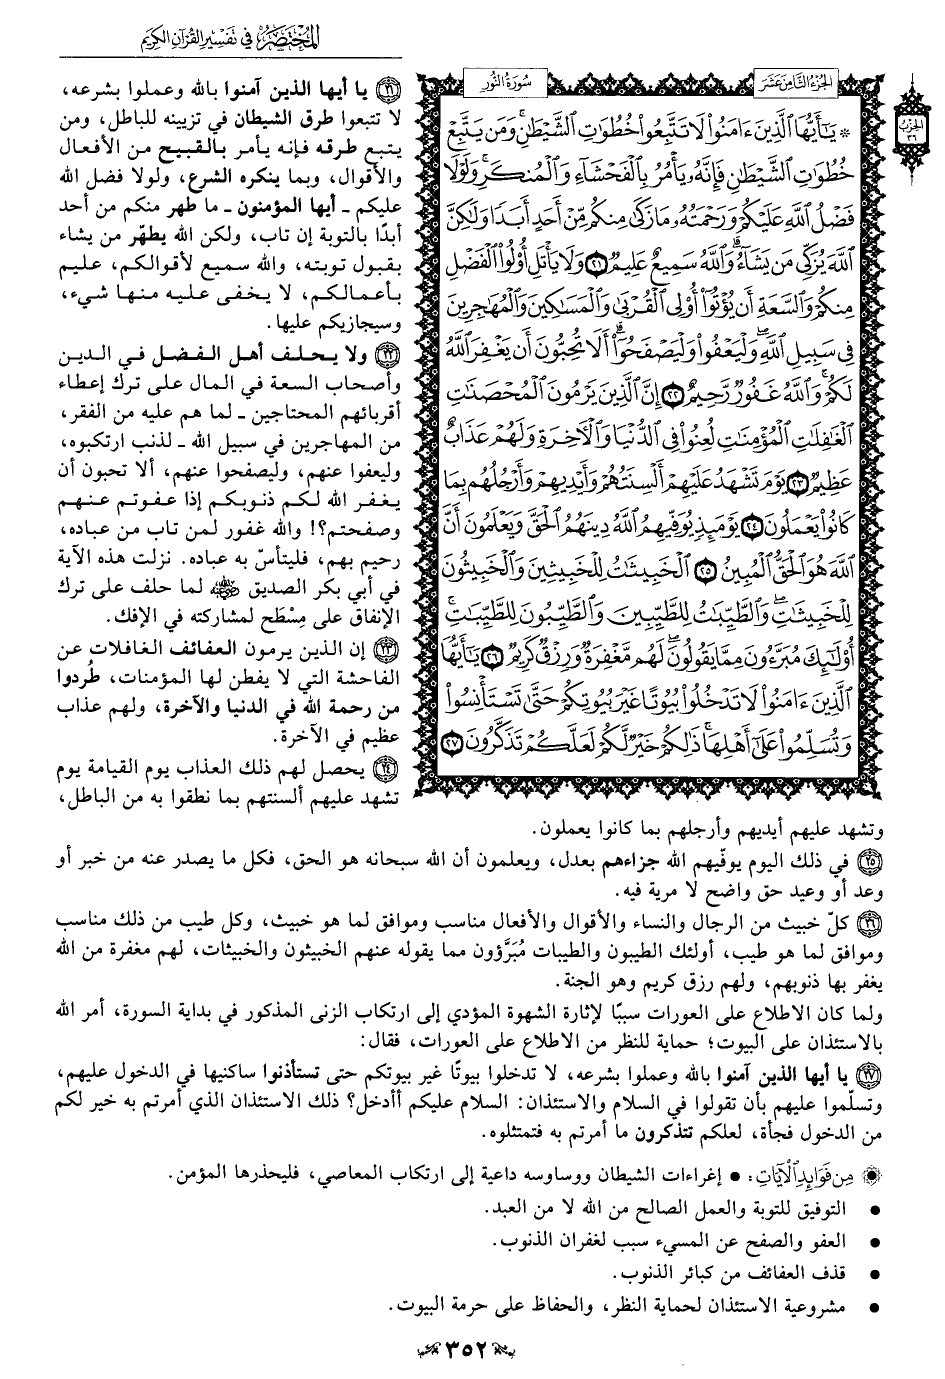 المختصر في تفسير القرآن الكريم
الجزء الثامن عشر
سورة النور
الحزب ٣٦
۞ يَٰٓأَيُّهَا ٱلَّذِينَ ءَامَنُواْ لَا تَتَّبِعُواْ خُطُوَٰتِ ٱلشَّيْطَٰنِۚ وَمَن يَتَّبِعْ
خُطُوَٰتِ ٱلشَّيْطَٰنِ فَإِنَّهُۥ يَأْمُرُ بِٱلْفَحْشَآءِ وَٱلْمُنكَرِۚ وَلَوْلَا
فَضْلُ ٱللَّهِ عَلَيْكُمْ وَرَحْمَتُهُۥ مَا زَكَىٰ مِنكُم مِّنْ أَحَدٍ أَبَدًا وَلَٰكِنَّ
ٱللَّهَ يُزَكِّي مَن يَشَآءُۗ وَٱللَّهُ سَمِيعٌ عَلِيمٌ ٢١ وَلَا يَأْتَلِ أُوْلُواْ ٱلْفَضْلِ
مِنكُمْ وَٱلسَّعَةِ أَن يُؤْتُوٓاْ أُوْلِي ٱلْقُرْبَىٰ وَٱلْمَسَٰكِينَ وَٱلْمُهَٰجِرِينَ
فِي سَبِيلِ ٱللَّهِۖ وَلْيَعْفُواْ وَلْيَصْفَحُوٓاْۗ أَلَا تُحِبُّونَ أَن يَغْفِرَ ٱللَّهُ
لَكُمْۚ وَٱللَّهُ غَفُورٌ رَّحِيمٌ ٢٢ إِنَّ ٱلَّذِينَ يَرْمُونَ ٱلْمُحْصَنَٰتِ
ٱلْغَٰفِلَٰتِ ٱلْمُؤْمِنَٰتِ لُعِنُواْ فِي ٱلدُّنْيَا وَٱلْأٓخِرَةِ وَلَهُمْ عَذَابٌ
عَظِيمٌ ٢٣ يَوْمَ تَشْهَدُ عَلَيْهِمْ أَلْسِنَتُهُمْ وَأَيْدِيهِمْ وَأَرْجُلُهُم بِمَا
كَانُواْ يَعْمَلُونَ ٢٤ يَوْمَئِذٍ يُوَفِّيهِمُ ٱللَّهُ دِينَهُمُ ٱلْحَقَّ وَيَعْلَمُونَ أَنَّ
ٱللَّهَ هُوَ ٱلْحَقُّ ٱلْمُبِينُ ٢٥ ٱلْخَبِيثَٰتُ لِلْخَبِيثِينَ وَٱلْخَبِيثُونَ
لِلْخَبِيثَٰتِۖ وَٱلطَّيِّبَٰتُ لِلطَّيِّبِينَ وَٱلطَّيِّبُونَ لِلطَّيِّبَٰتِۚ
أُوْلَٰٓئِكَ مُبَرَّءُونَ مِمَّا يَقُولُونَۖ لَهُم مَّغْفِرَةٌ وَرِزْقٌ كَرِيمٌ ٢٦ يَٰٓأَيُّهَا
ٱلَّذِينَ ءَامَنُواْ لَا تَدْخُلُواْ بُيُوتًا غَيْرَ بُيُوتِكُمْ حَتَّىٰ تَسْتَأْنِسُواْ
وَتُسَلِّمُواْ عَلَىٰٓ أَهْلِهَاۚ ذَٰلِكُمْ خَيْرٌ لَّكُمْ لَعَلَّكُمْ تَذَكَّرُونَ ٢٧
٢١ يا أيها الذين آمنوا بالله وعملوا بشرعه،
لا تتبعوا طرق الشيطان في تزيينه للباطل، ومن
يتبع طرقه فإنه يأمر بالقبيح من الأفعال
والأقوال، وبما ينكره الشرع، ولولا فضل الله
عليكم - أيها المؤمنون - ما طهر منكم من أحد
أبدًا بالتوبة إن تاب، ولكن الله يطهّر من يشاء
بقبول توبته، والله سميع لأقوالكم، عليم
بأعمالكم، لا يخفى عليه منها شيء،
وسيجازيكم عليها.
٢٢ ولا يحلف أهل الفضل في الدين
وأصحاب السعة في المال على ترك إعطاء
أقربائهم المحتاجين - لما هم عليه من الفقر،
من المهاجرين في سبيل الله - لذنب ارتكبوه،
وليعفوا عنهم، وليصفحوا عنهم، ألا تحبون أن
يغفر الله لكم ذنوبكم إذا عفوتم عنهم
وصفحتم؟! والله غفور لمن تاب من عباده،
رحيم بهم، فليتأسّ به عباده. نزلت هذه الآية
في أبي بكر الصديق رضي الله عنه لما حلف على ترك
الإنفاق على مِسْطَح لمشاركته في الإفك.
٢٣ إن الذين يرمون العفائف الغافلات عن
الفاحشة التي لا يفطن لها المؤمنات، طُردوا
من رحمة الله في الدنيا والآخرة، ولهم عذاب
عظيم في الآخرة.
٢٤ يحصل لهم ذلك العذاب يوم القيامة يوم
تشهد عليهم ألسنتهم بما نطقوا به من الباطل،
وتشهد عليهم أيديهم وأرجلهم بما كانوا يعملون.
٢٥ في ذلك اليوم يوفّيهم الله جزاءهم بعدل، ويعلمون أن الله سبحانه هو الحق، فكل ما يصدر عنه من خبر أو
وعد أو وعيد حق واضح لا مرية فيه.
٢٦ كلّ خبيث من الرجال والنساء والأقوال والأفعال مناسب وموافق لما هو خبيث، وكل طيب من ذلك مناسب
وموافق لما هو طيب، أولئك الطيبون والطيبات مُبَرَّؤون مما يقوله عنهم الخبيثون والخبيثات، لهم مغفرة من الله
يغفر بها ذنوبهم، ولهم رزق كريم وهو الجنة.
ولما كان الاطلاع على العورات سببًا لإثارة الشهوة المؤدي إلى ارتكاب الزنى المذكور في بداية السورة، أمر الله
بالاستئذان على البيوت؛ حماية للنظر من الاطلاع على العورات، فقال:
٢٧ يا أيها الذين آمنوا بالله وعملوا بشرعه، لا تدخلوا بيوتًا غير بيوتكم حتى تستأذنوا ساكنيها في الدخول عليهم،
وتسلّموا عليهم بأن تقولوا في السلام والاستئذان: السلام عليكم أأدخل؟ ذلك الاستئذان الذي أمرتم به خير لكم
من الدخول فجأة، لعلكم تتذكرون ما أمرتم به فتمتثلوه.
من فوائد الآيات: • إغراءات الشيطان ووساوسه داعية إلى ارتكاب المعاصي، فليحذرها المؤمن.
• التوفيق للتوبة والعمل الصالح من الله لا من العبد.
• العفو والصفح عن المسيء سبب لغفران الذنوب.
• قذف العفائف من كبائر الذنوب.
• مشروعية الاستئذان لحماية النظر، والحفاظ على حرمة البيوت.
٣٥٢